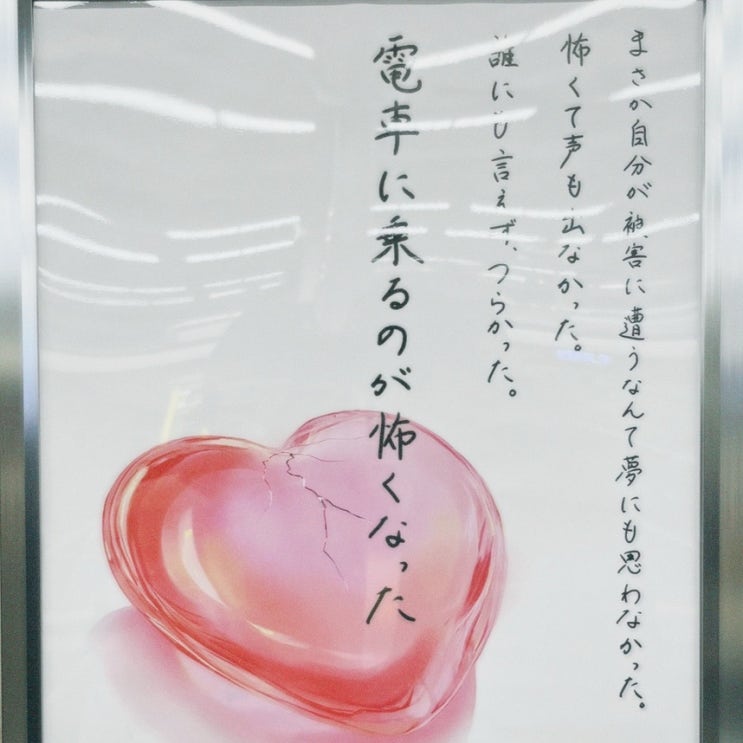 まさか自分が被害に遭うなんて夢にも思わなかった。
怖くて声も出なかった。
誰にも言えず、つらかった。
電車に乗るのが怖くなった